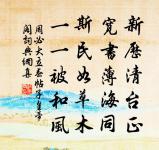 新歷清台正
寬書薄海同
斯民如草木
一一被和風
周必大立春帖子皇帝
閣詞典網